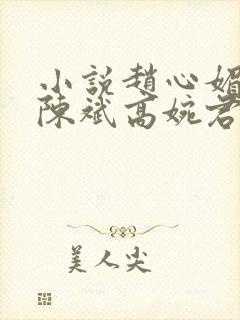 小説趙心媚
陳斌高婉君
美人尖